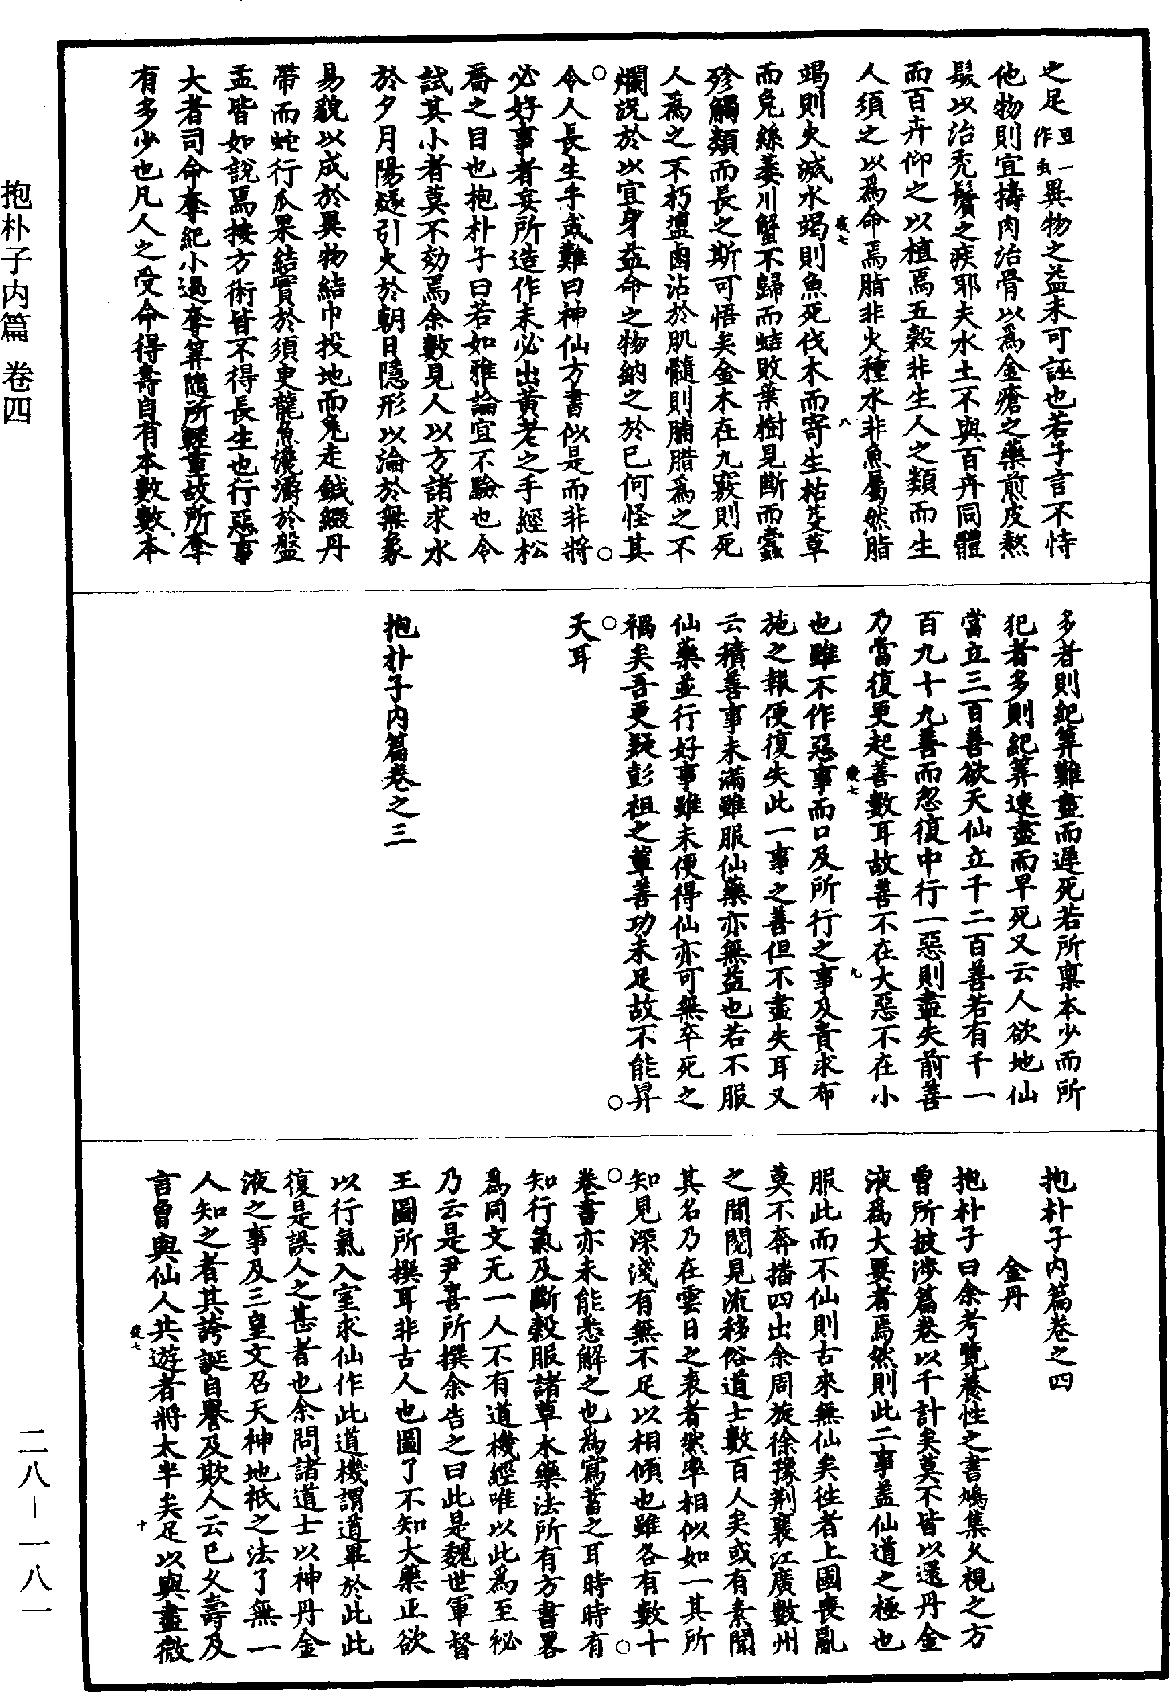 之足且一作血異物之益未可誣也若子言不恃
他物則宜擣肉治骨以為金瘡之藥煎皮熬
髮以治禿鬢之疾耶夫水土不與百卉同體
而百卉仰之以植焉五榖非生人之類而生
人須之以為命焉脂非火種水非魚屬然脂
竭則火滅水竭則魚死伐木而寄生枯芟草
而兔絲萎川蟹不歸而蛣敗桑樹見斷而蠹
殄觸類而長之斯可悟矣金木在九竅則死
人為之不朽鹽鹵沾於肌髓則脯腊為之不
爛況於以宜身益命之物納之於已何怪其
令人長生乎或難曰神仙方書似是而非將
必好事者妄所造作未必出黃老之手經松
喬之目也抱朴子曰若如雅論宜不驗也今
試其小者莫不効焉余數見人以方諸求水
於夕月陽燧引火於朝日隱形以淪於無象
易貌以成於異物結巾投地而兔走鍼綴丹
帶而蛇行瓜果結實於須臾龍魚瀺灂於盤
盂皆如說焉按方術皆不得長生也行惡事
大者司命奪紀小過奪算隨所輕重故所奪
有多少也凡人之受命得壽自有本數數本
多者則紀算難盡而遲死若所稟本少而所
犯者多則紀算速盡而早死又云人欲地仙
當立三百善欲天仙立千二百善若有千一
百九十九善而忽復中行一惡則盡失前善
乃當復更起善數耳故善不在大惡不在小
也雖不作惡事而口及所行之事及責求布
施之報便復失此一事之善但不盡失耳又
云積善事未滿雖服仙藥亦無益也若不服
仙藥並行好事雖未便得仙亦可無卒死之
禍矣吾更疑彭祖之輩善功未足故不能昇
天耳
抱朴子內篇卷之三
抱朴子內篇卷之四
金丹
抱朴子曰余考覽養性之書鳩集久視之方
曾所披涉篇卷以千計矣莫不皆以還丹金
液為大要者焉然則此二事蓋仙道之極也
服此而不仙則古來無仙矣往者上國喪亂
莫不奔播四出余周旋徐豫荆襄江廣數州
之間閱見流移俗道士數百人矣或有素聞
其名乃在雲日之表者然率相似如一其所
知見深淺有無不足以相傾也雖各有數十
卷書亦未能悉解之也為寫蓄之耳時時有
知行氣及斷穀服諸草木藥法所有方書畧
為同文无一人不有道機經唯以此為至祕
乃云是尹喜所撰余告之曰此是魏世軍督
王圖所撰耳非古人也圖了不知大藥正欲
以行氣入室求仙作此道機謂道畢於此此
復是誤人之甚者也余問諸道士以神丹金
液之事及三皇文召天神地祇之法了無一
人知之者其誇誕自譽及欺人云已久壽及
言曾與仙人共遊者將太半矣足以與盡微
抱朴子內篇 卷四
二八—一八一